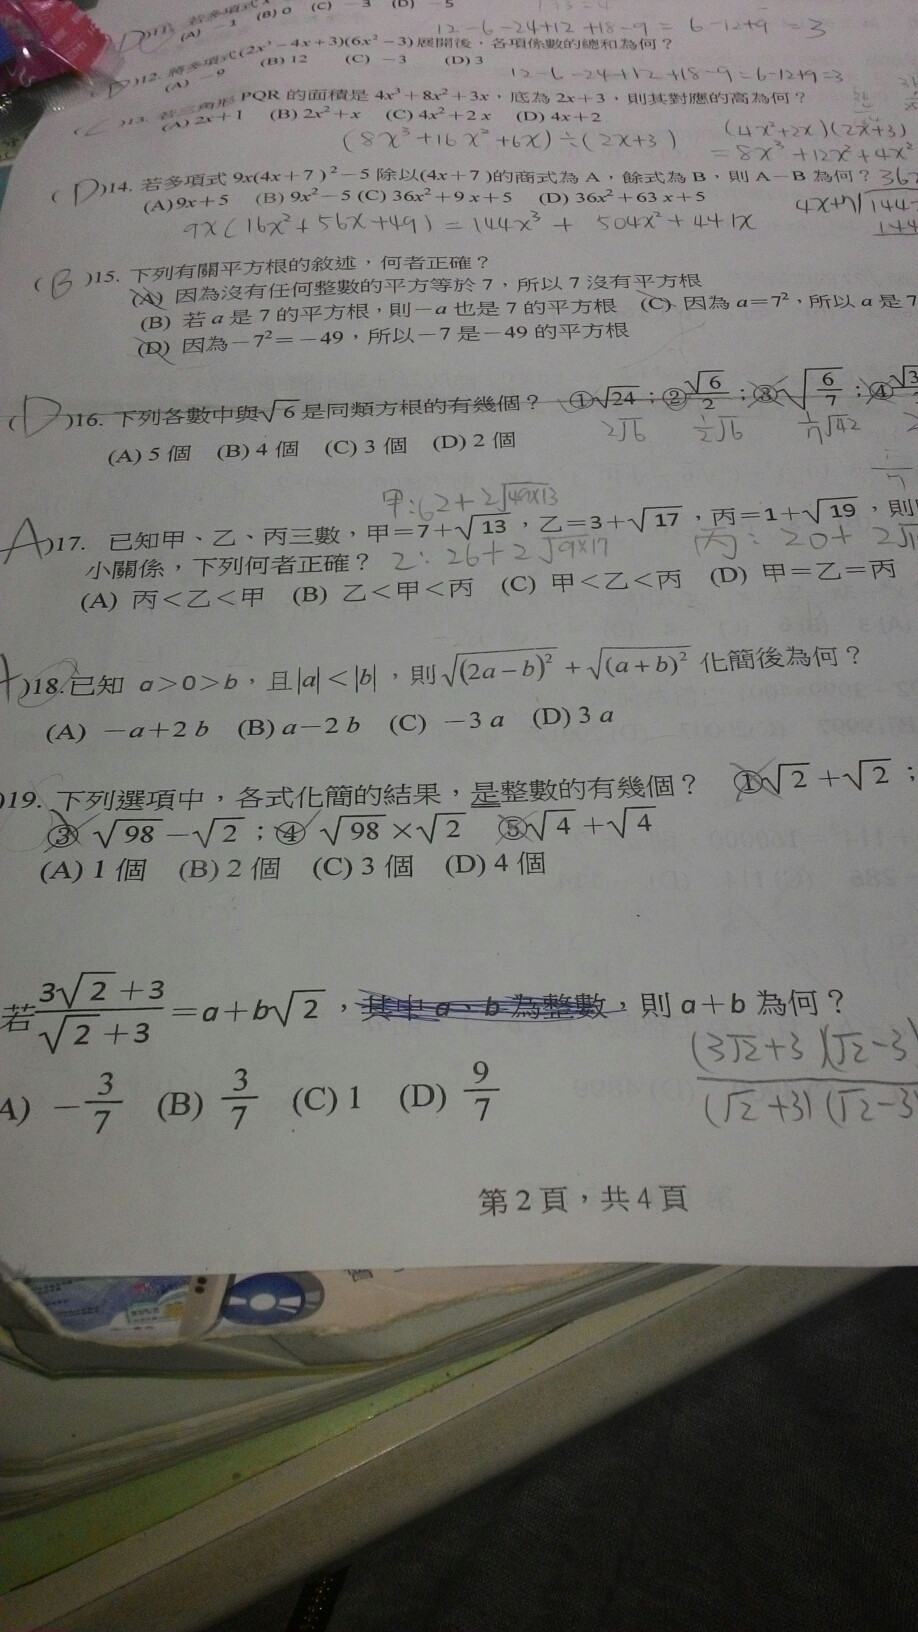 (A) －1 (B) 0 (C) －3 (D) －5
12－6－24＋12＋18－9 ＝ 6－12＋9 ＝3
(D)12. 將多項式(2x³－4x＋3)(6x²－3)展開後，各項係數的總和為何？
(A) －9 (B) 12 (C) －3 (D) 3
12－6－24＋12＋18－9＝6－12＋9＝3
(C)13. 若三角形 PQR 的面積是 4x³＋8x²＋3x，底為 2x＋3，則其對應的高為何？
(A) 2x＋1 (B) 2x²＋x (C) 4x²＋2 x (D) 4x＋2
(8x³＋16x²＋6x)÷(2x＋3) (4x²＋2x)(2x＋3)
＝8x³＋12x²＋4x²
(D)14. 若多項式 9x(4x＋7)²－5 除以(4x＋7)的商式為 A，餘式為 B，則 A－B 為何？
(A)9x＋5 (B) 9x²－5 (C) 36x²＋9 x＋5 (D) 36x²＋63 x＋5
9x(16x²＋56x＋49)＝144x³＋504x²＋441x
(B)15. 下列有關平方根的敘述，何者正確？
(A) 因為沒有任何整數的平方等於 7，所以 7 沒有平方根
(B) 若 a 是 7 的平方根，則－a 也是 7 的平方根 (C) 因為 a＝7²，所以 a 是 7
(D) 因為－7²＝－49，所以－7 是－49 的平方根
(D)16. 下列各數中與√6 是同類方根的有幾個？ ①√24；②√6/2；③√(6/7)；④√3
2√6 ½√6 1/7√42
(A) 5 個 (B) 4 個 (C) 3 個 (D) 2 個
甲:62＋2√49×13
A)17. 已知甲、乙、丙三數，甲＝7＋√13，乙＝3＋√17，丙＝1＋√19，則
小關係，下列何者正確？ 乙:26＋2√9×17 丙:20＋2√1
(A) 丙＜乙＜甲 (B) 乙＜甲＜丙 (C) 甲＜乙＜丙 (D) 甲＝乙＝丙
)18.已知 a＞0＞b，且|a|＜|b|，則√(2a－b)²＋√(a＋b)² 化簡後為何？
(A) －a＋2 b (B) a－2 b (C) －3 a (D) 3 a
)19. 下列選項中，各式化簡的結果，是整數的有幾個？ ①√2＋√2；
③ √98－√2；④ √98×√2 ⑤√4＋√4
(A) 1 個 (B) 2 個 (C) 3 個 (D) 4 個
若(3√2＋3)/(√2＋3)＝a＋b√2，其中 a、b 為整數，則 a＋b 為何？
(3√2＋3)(√2－3)
(√2＋3)(√2－3)
A) －3/7 (B) 3/7 (C) 1 (D) 9/7
第 2 頁，共 4 頁